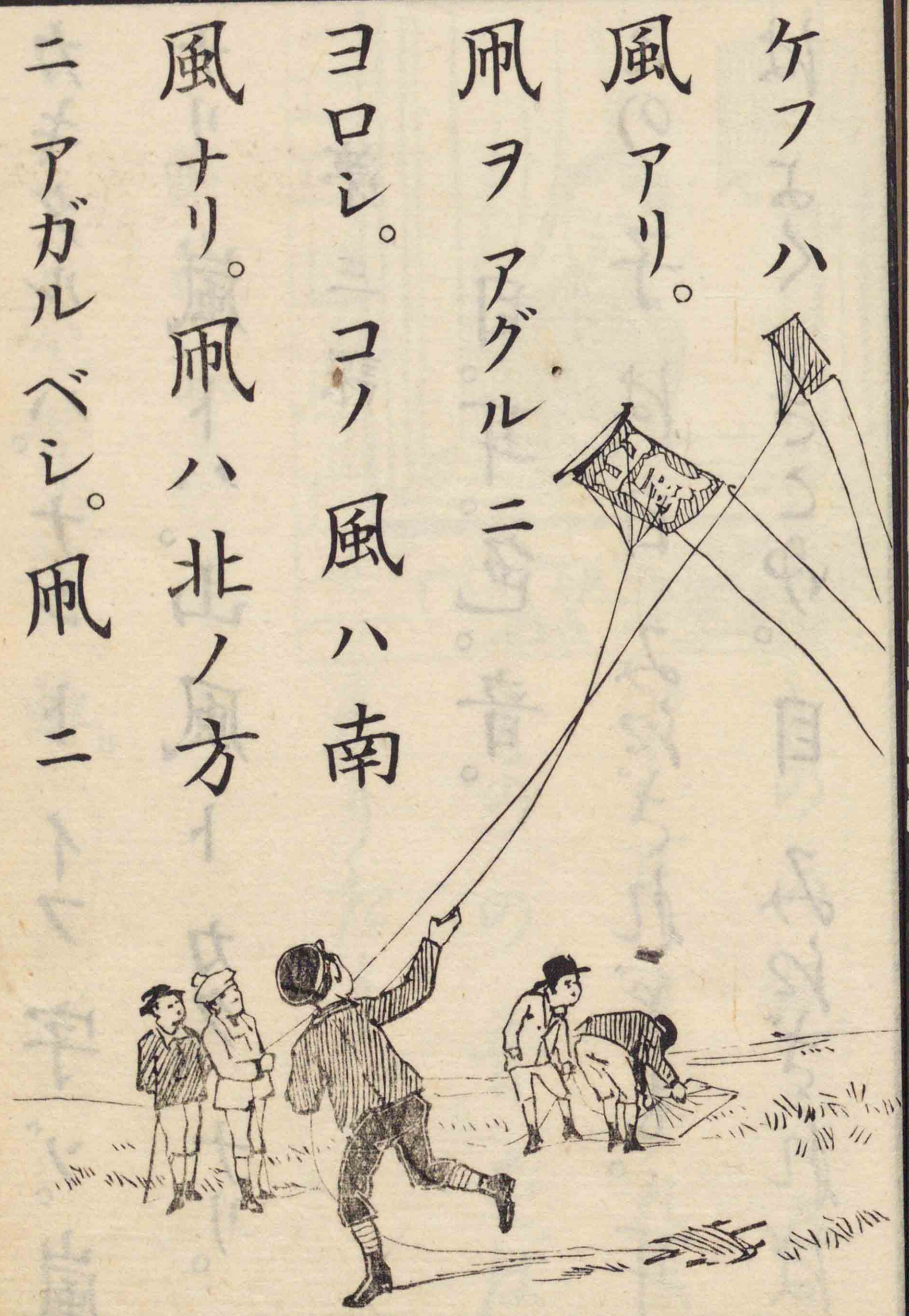 ケフ ハ
風 アリ。
凧 ヲ アグル ニ
ヨロシ。 コノ 風 ハ 南
風 ナリ。 凧 ハ 北 ノ 方
ニ アガル ベシ。 凧 ニ